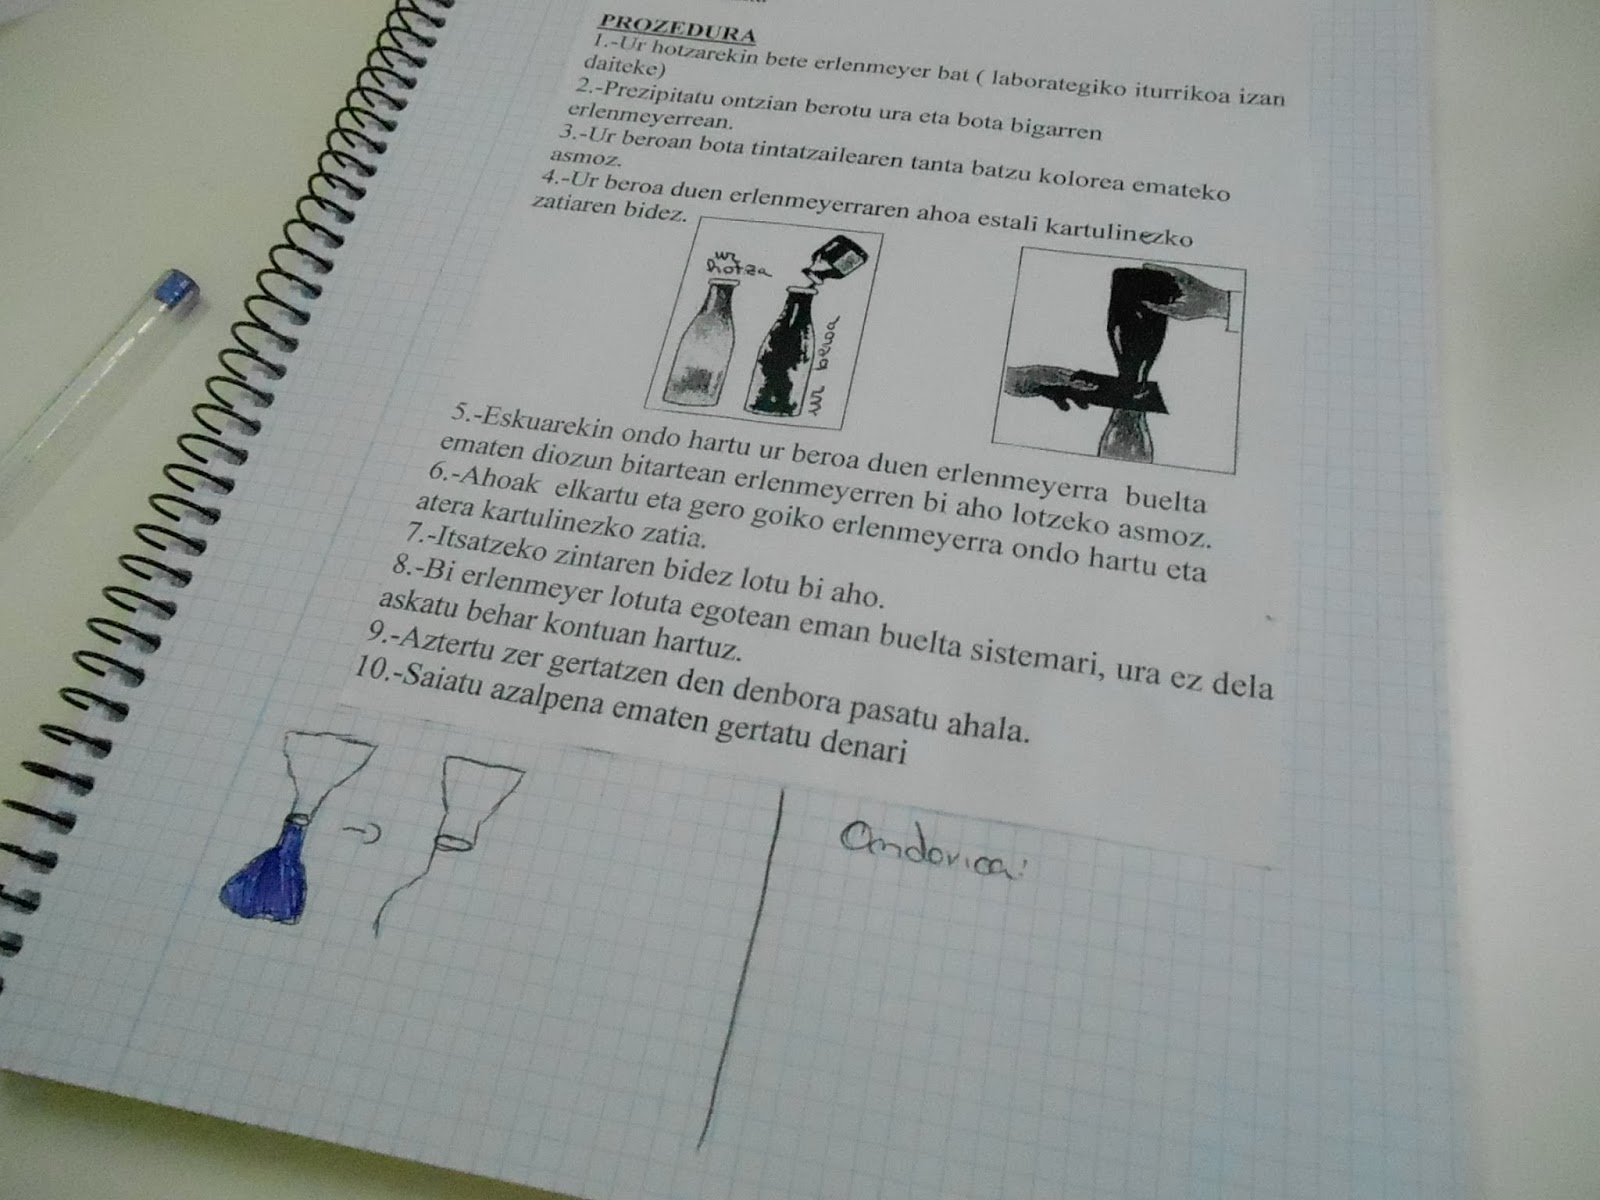 PROZEDURA
1.-Ur hotzarekin bete erlenmeyer bat ( laborategiko iturrikoa izan
daiteke)
2.-Prezipitatu ontzian berotu ura eta bota bigarren
erlenmeyerrean.
3.-Ur beroan bota tintatzailearen tanta batzu kolorea emateko
asmoz.
4.-Ur beroa duen erlenmeyerraren ahoa estali kartulinezko
zatiaren bidez.
ur
hotza
ur beroa
5.-Eskuarekin ondo hartu ur beroa duen erlenmeyerra buelta
ematen diozun bitartean erlenmeyerren bi aho lotzeko asmoz.
6.-Ahoak elkartu eta gero goiko erlenmeyerra ondo hartu eta
atera kartulinezko zatia.
7.-Itsatzeko zintaren bidez lotu bi aho.
8.-Bi erlenmeyer lotuta egotean eman buelta sistemari, ura ez dela
askatu behar kontuan hartuz.
9.-Aztertu zer gertatzen den denbora pasatu ahala.
10.-Saiatu azalpena ematen gertatu denari
Ondorioa: